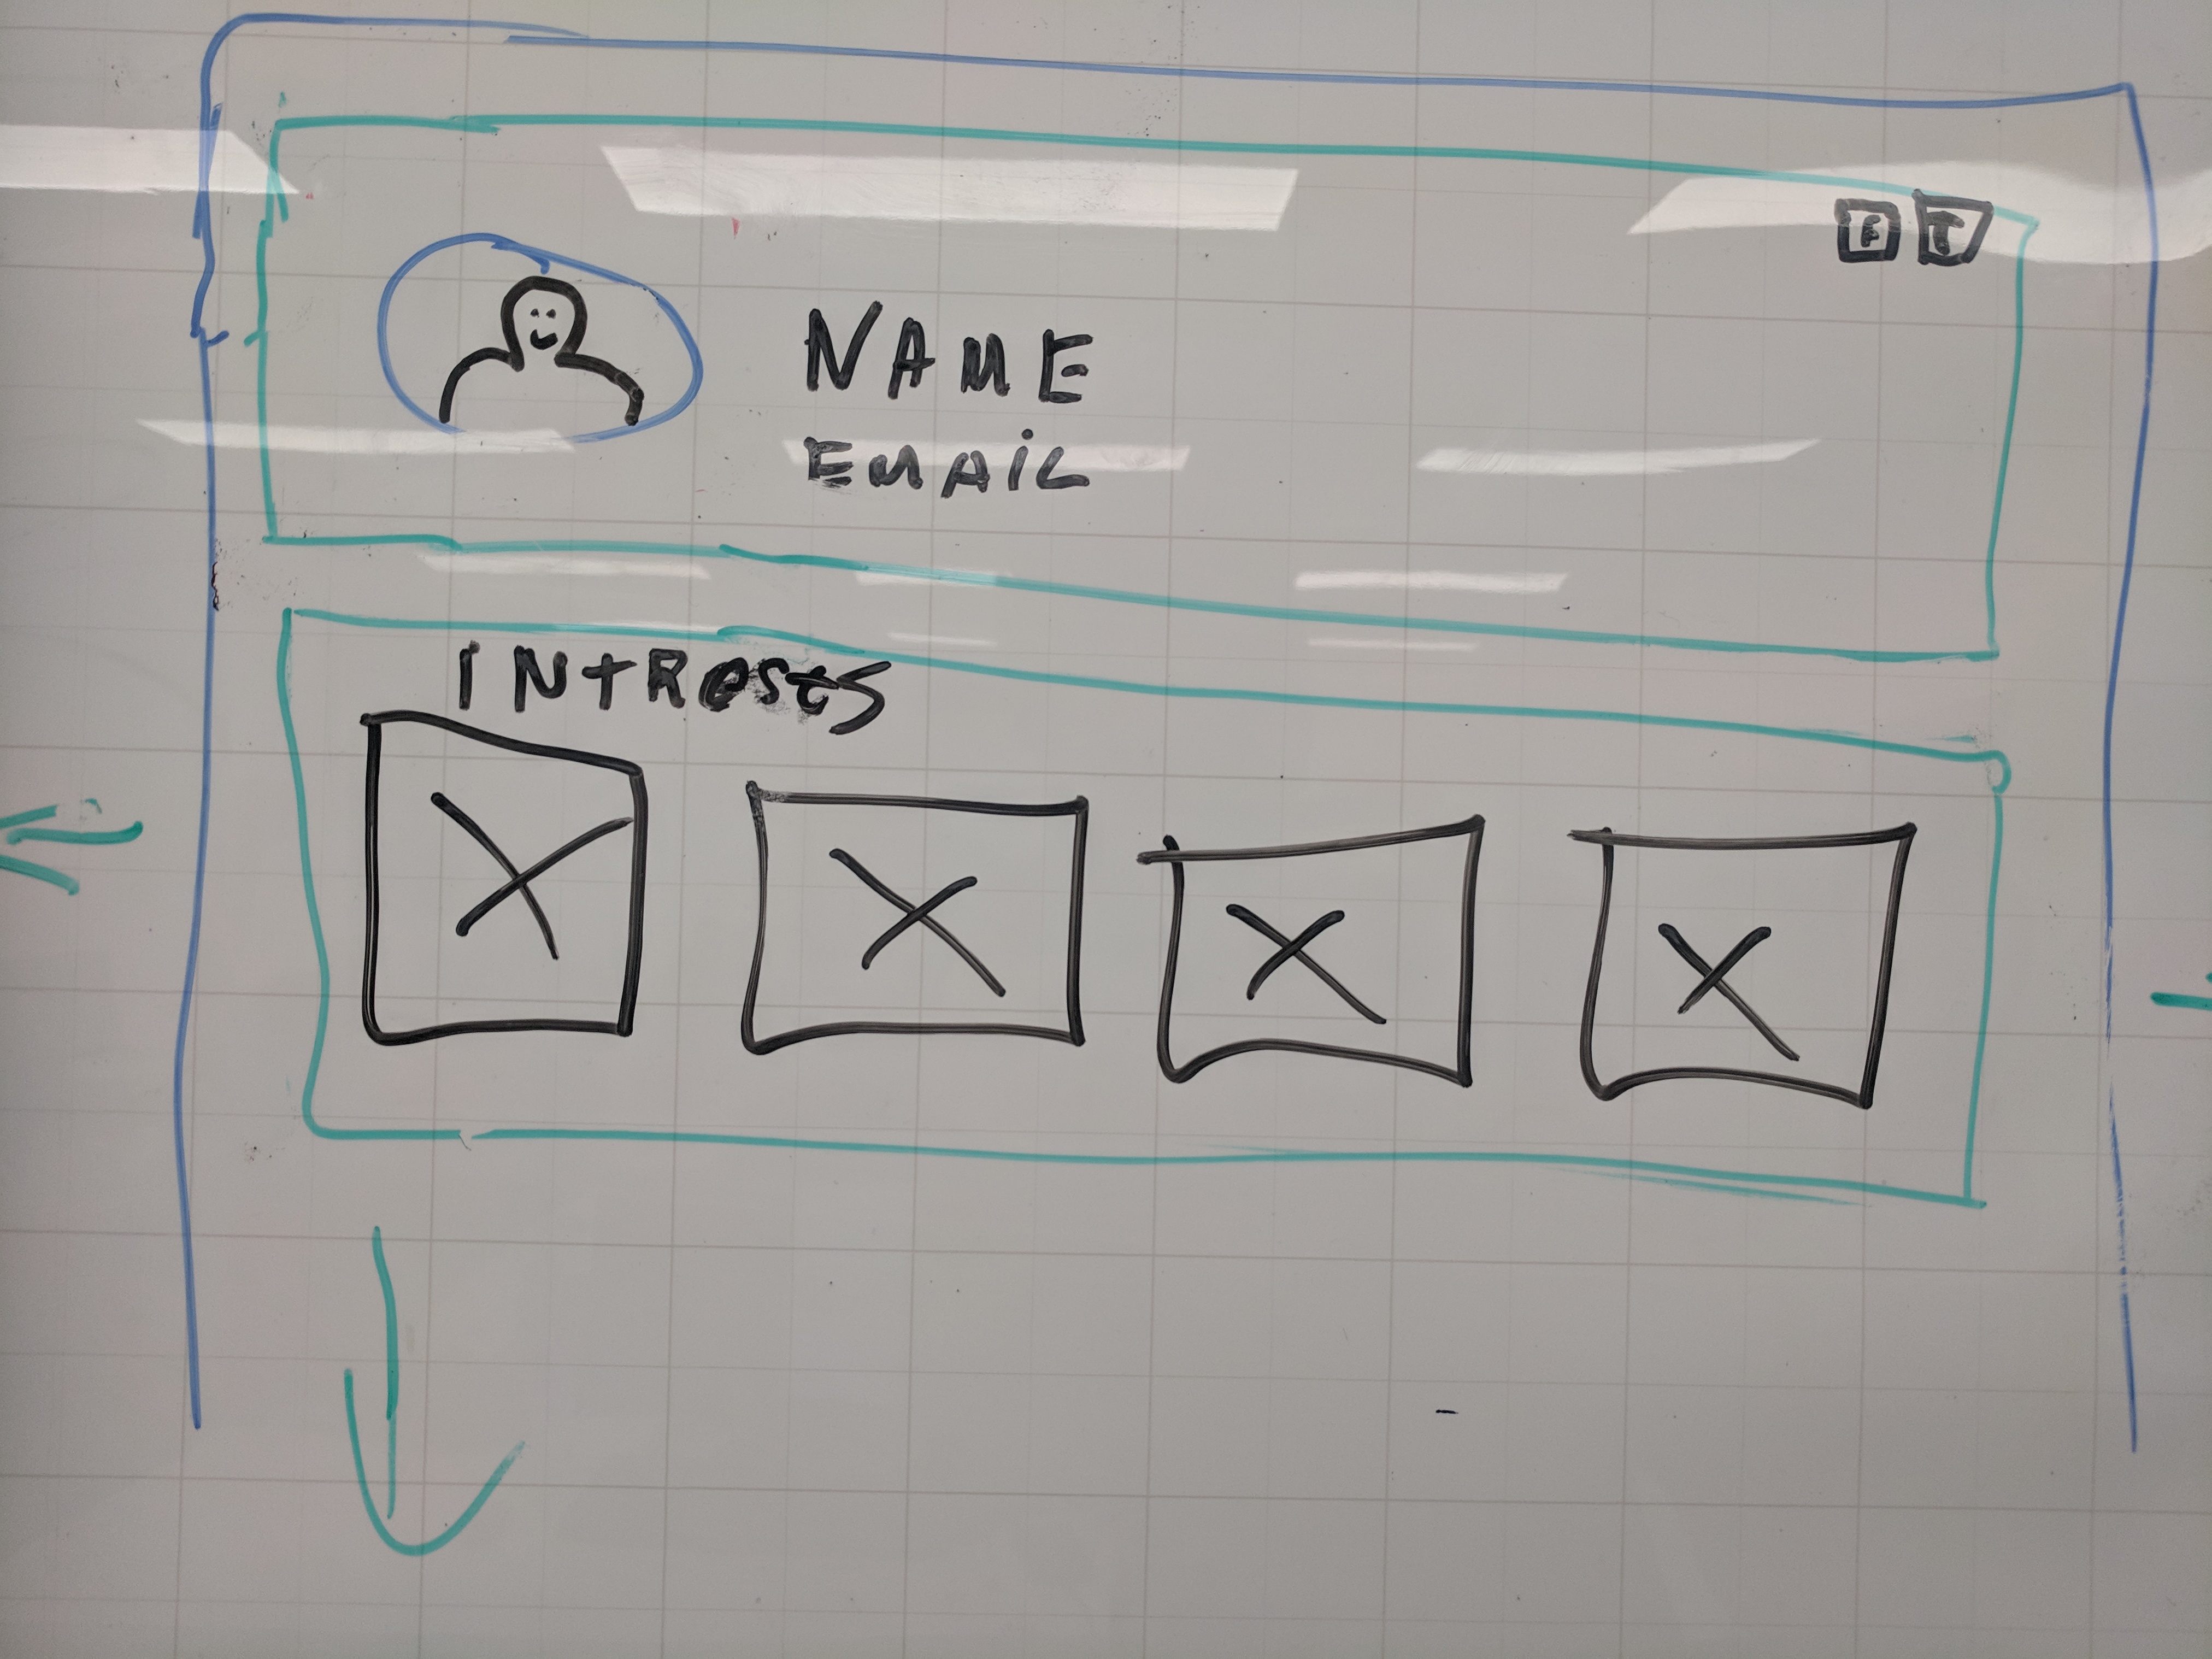 F T
NAME
EMAiL
INtRests